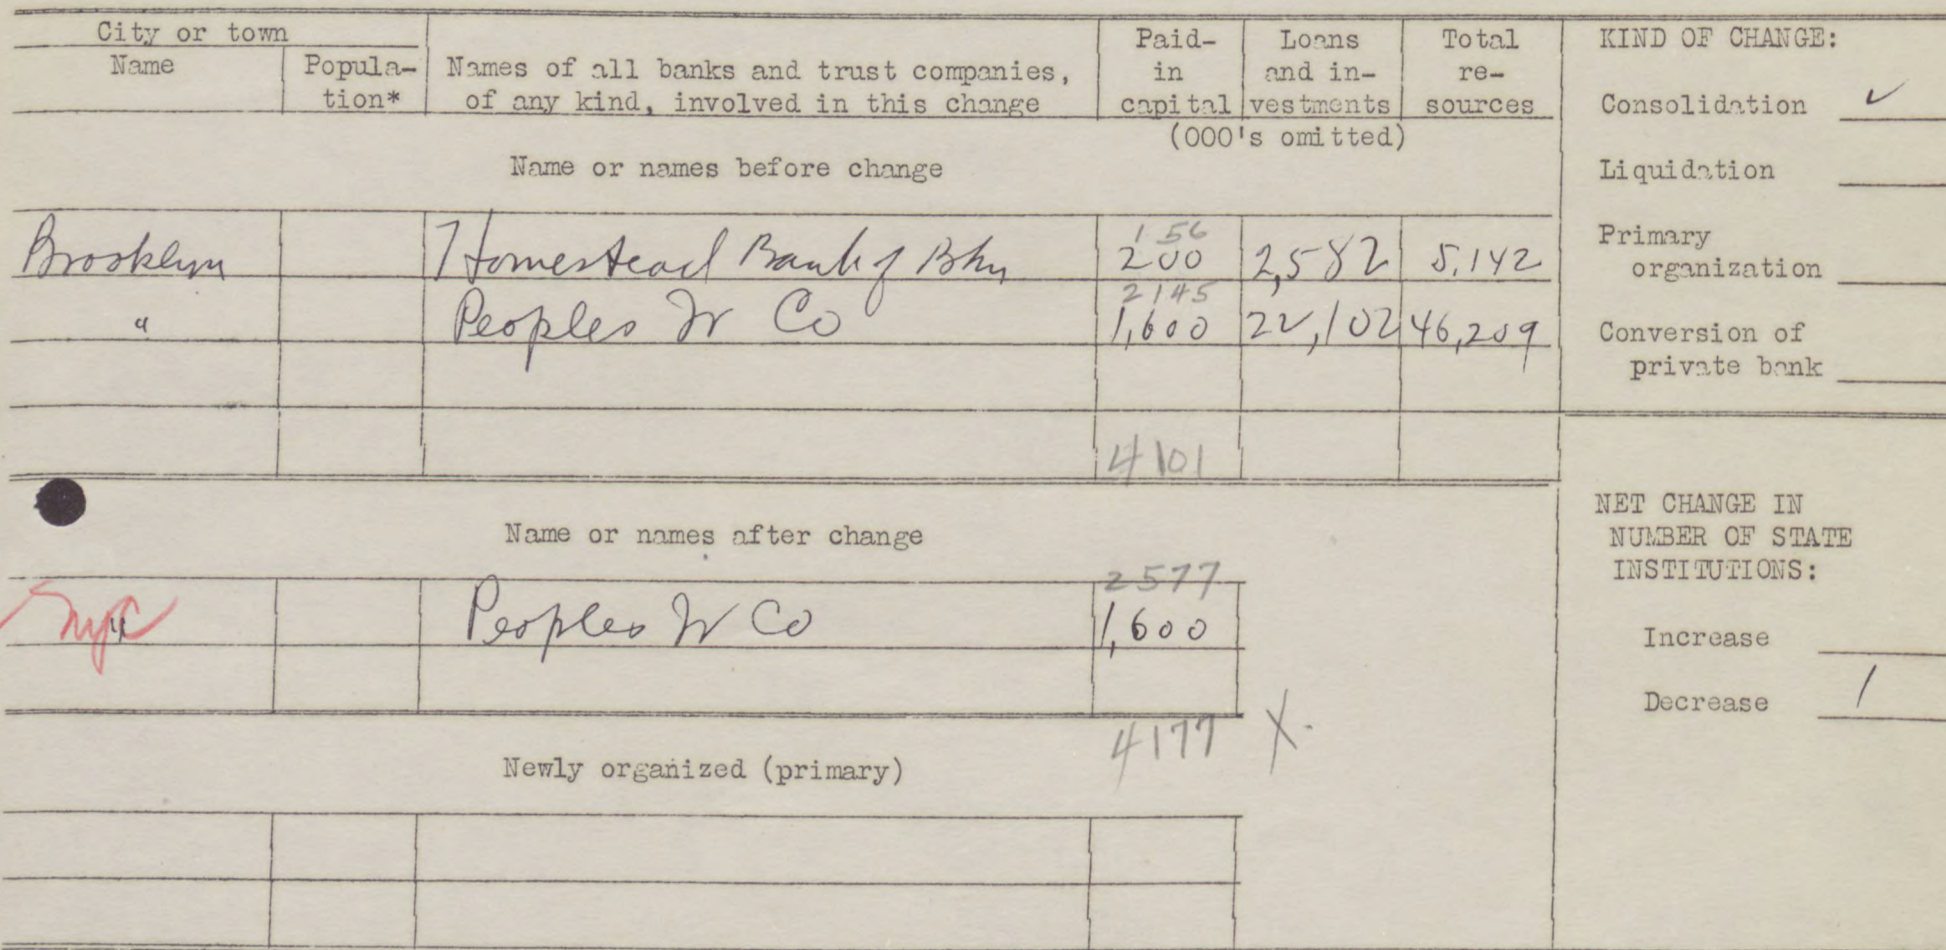 City or town
Name
Popula-
tion*
Names of all banks and trust companies,
of any kind, involved in this change
Paid-
in
capital
Loans
and in-
vestments
Total
re-
sources
(000's omitted)
Name or names before change
156
Brooklyn Homestead Bank of Bkn 200 2,582 5,142
2145
" Peoples Tr Co 1,600 22,102 46,209
4101
Name or names after change
2577
NYC " Peoples Tr Co 1,600
4177 X.
Newly organized (primary)
KIND OF CHANGE:
Consolidation ✓
Liquidation
Primary
organization
Conversion of
private bank
NET CHANGE IN
NUMBER OF STATE
INSTITUTIONS:
Increase
Decrease 1